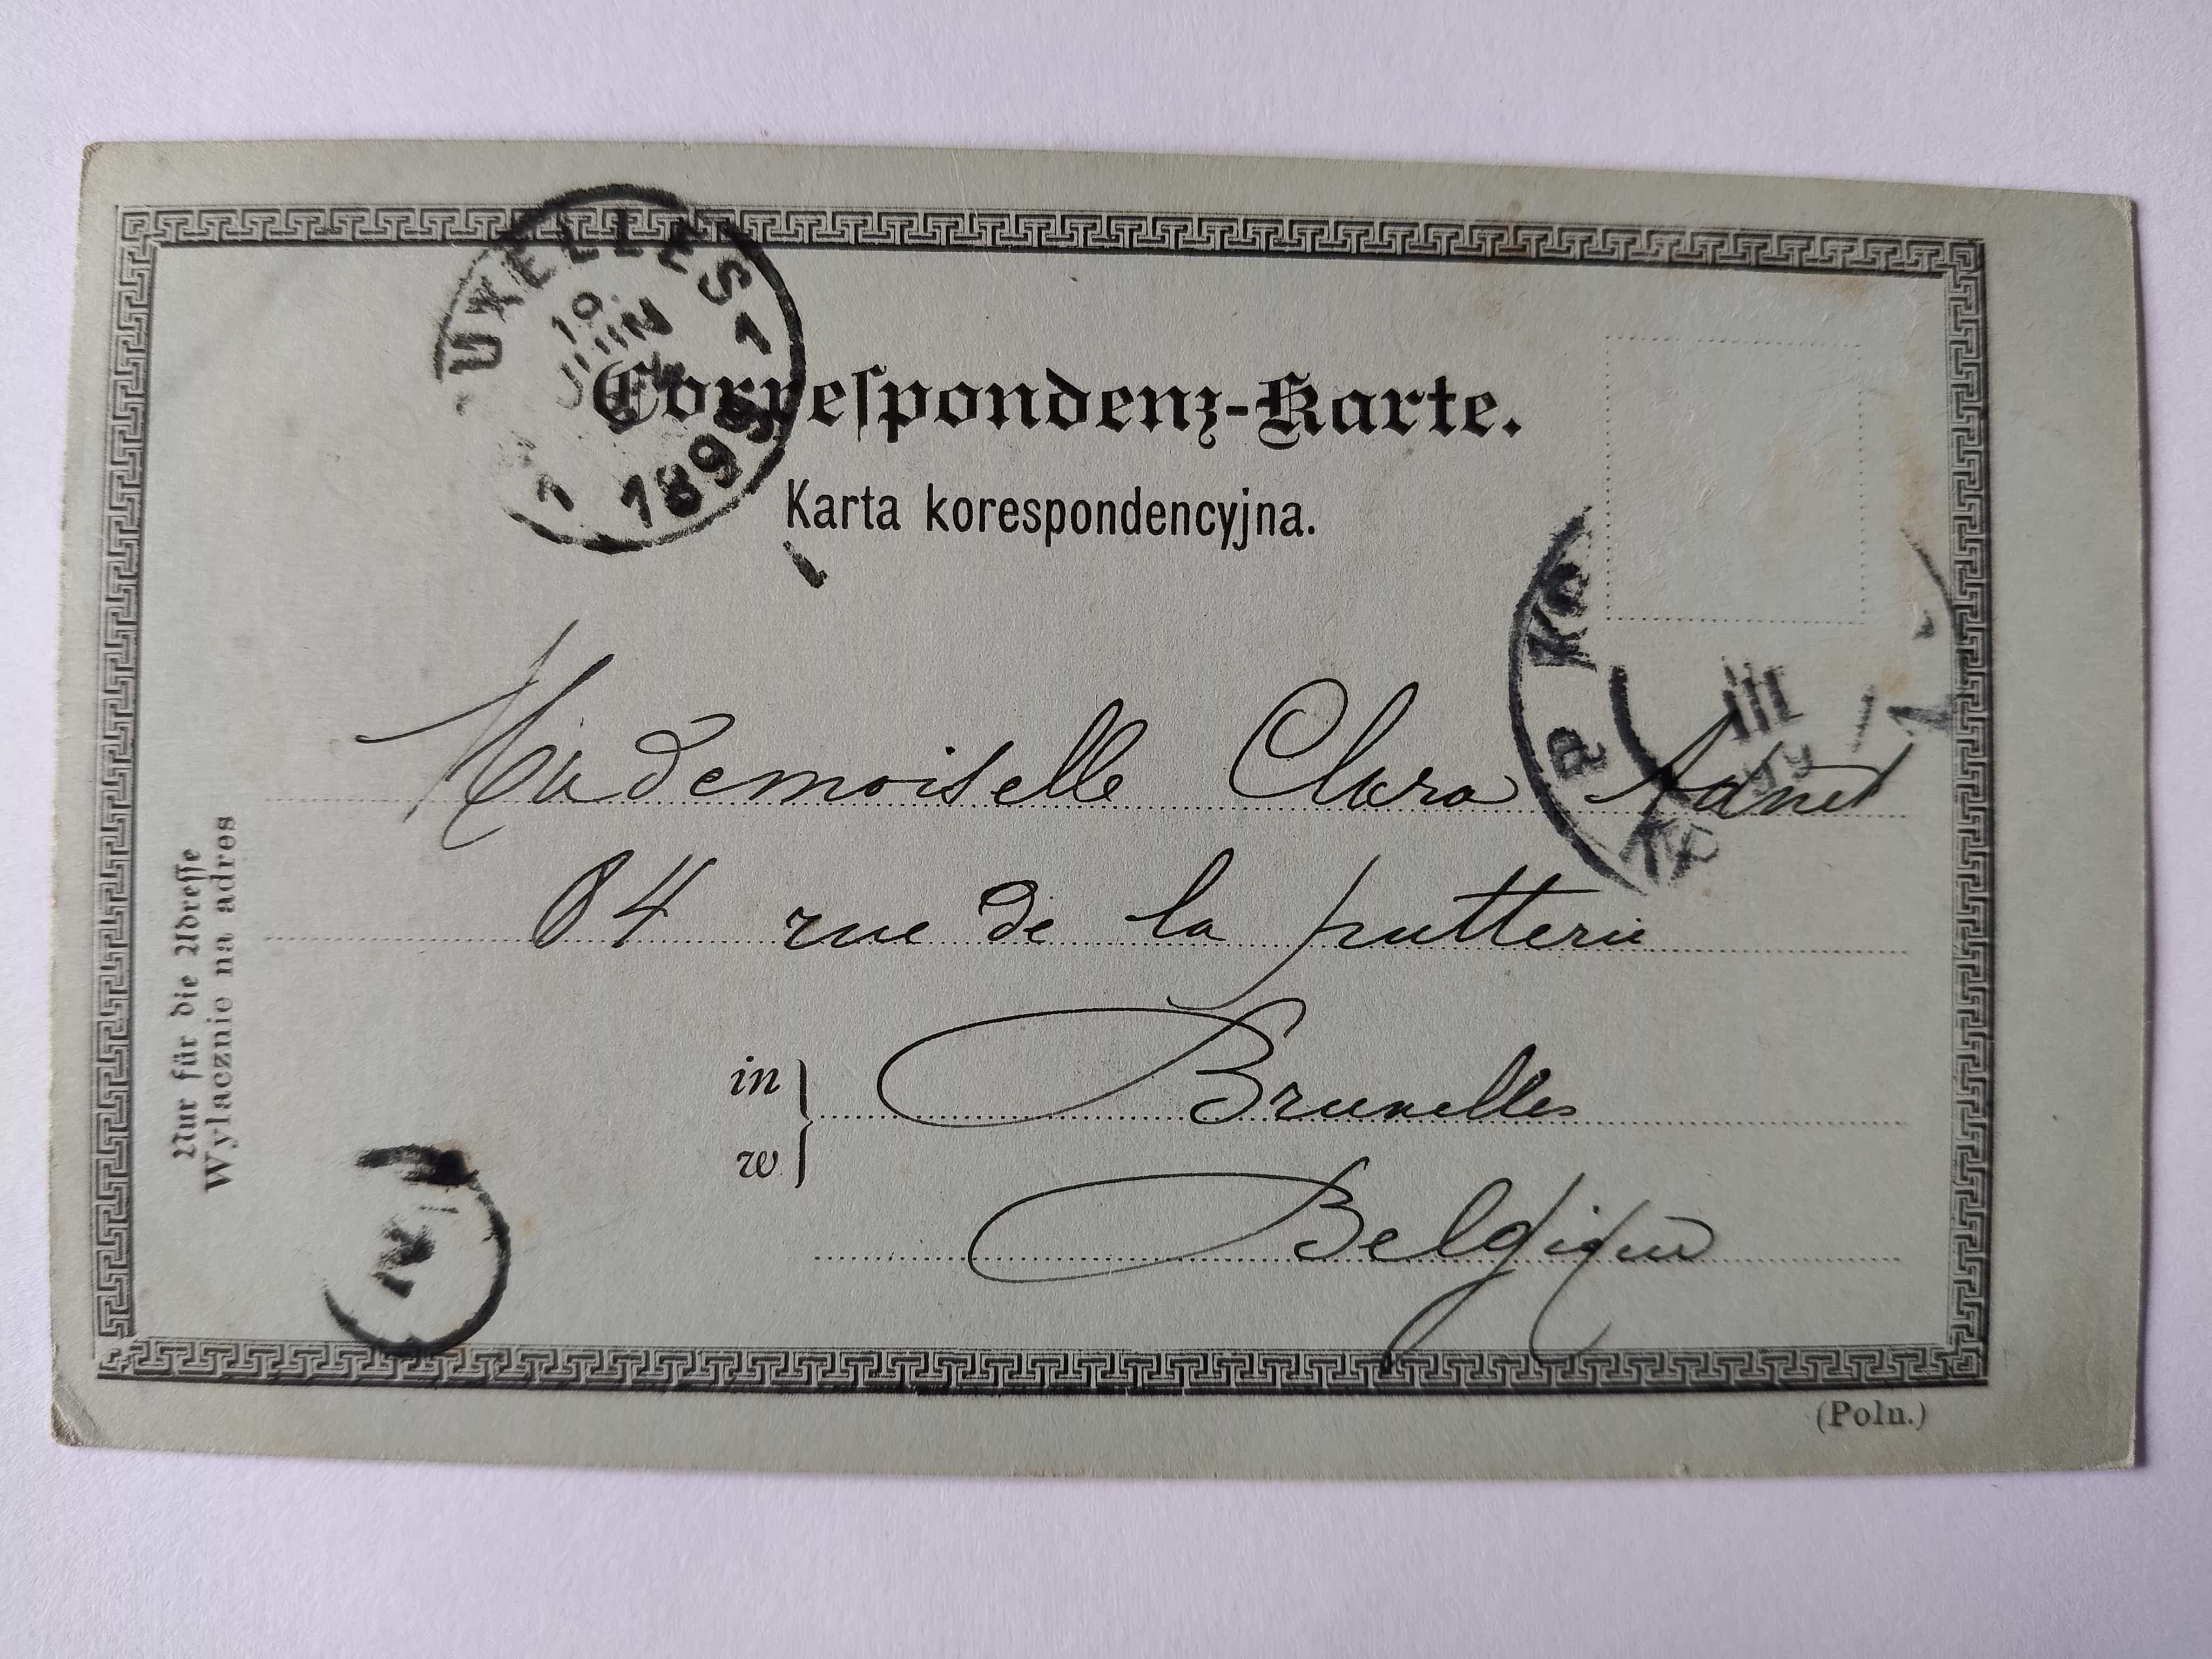 UXELLES 1
10
JUIN
1 1899
Correſpondenz-Karte.
Karta korespondencyjna.
Mademoiselle Clara
84 rue de la putterie
in
w
Bruxelles
Belgique
Nur für die Adreſſe
Wyłacznie na adres
(Poln.)